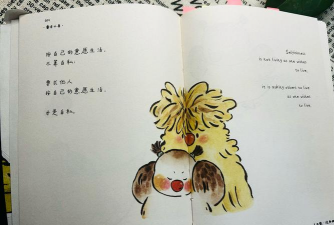 按自己的意愿生活,
不算自私。
要求他人
按自己的意愿生活,
才是自私。
Selfishness
is not living as one wishes
to live.
It is asking others to live
as one wishes
to live.